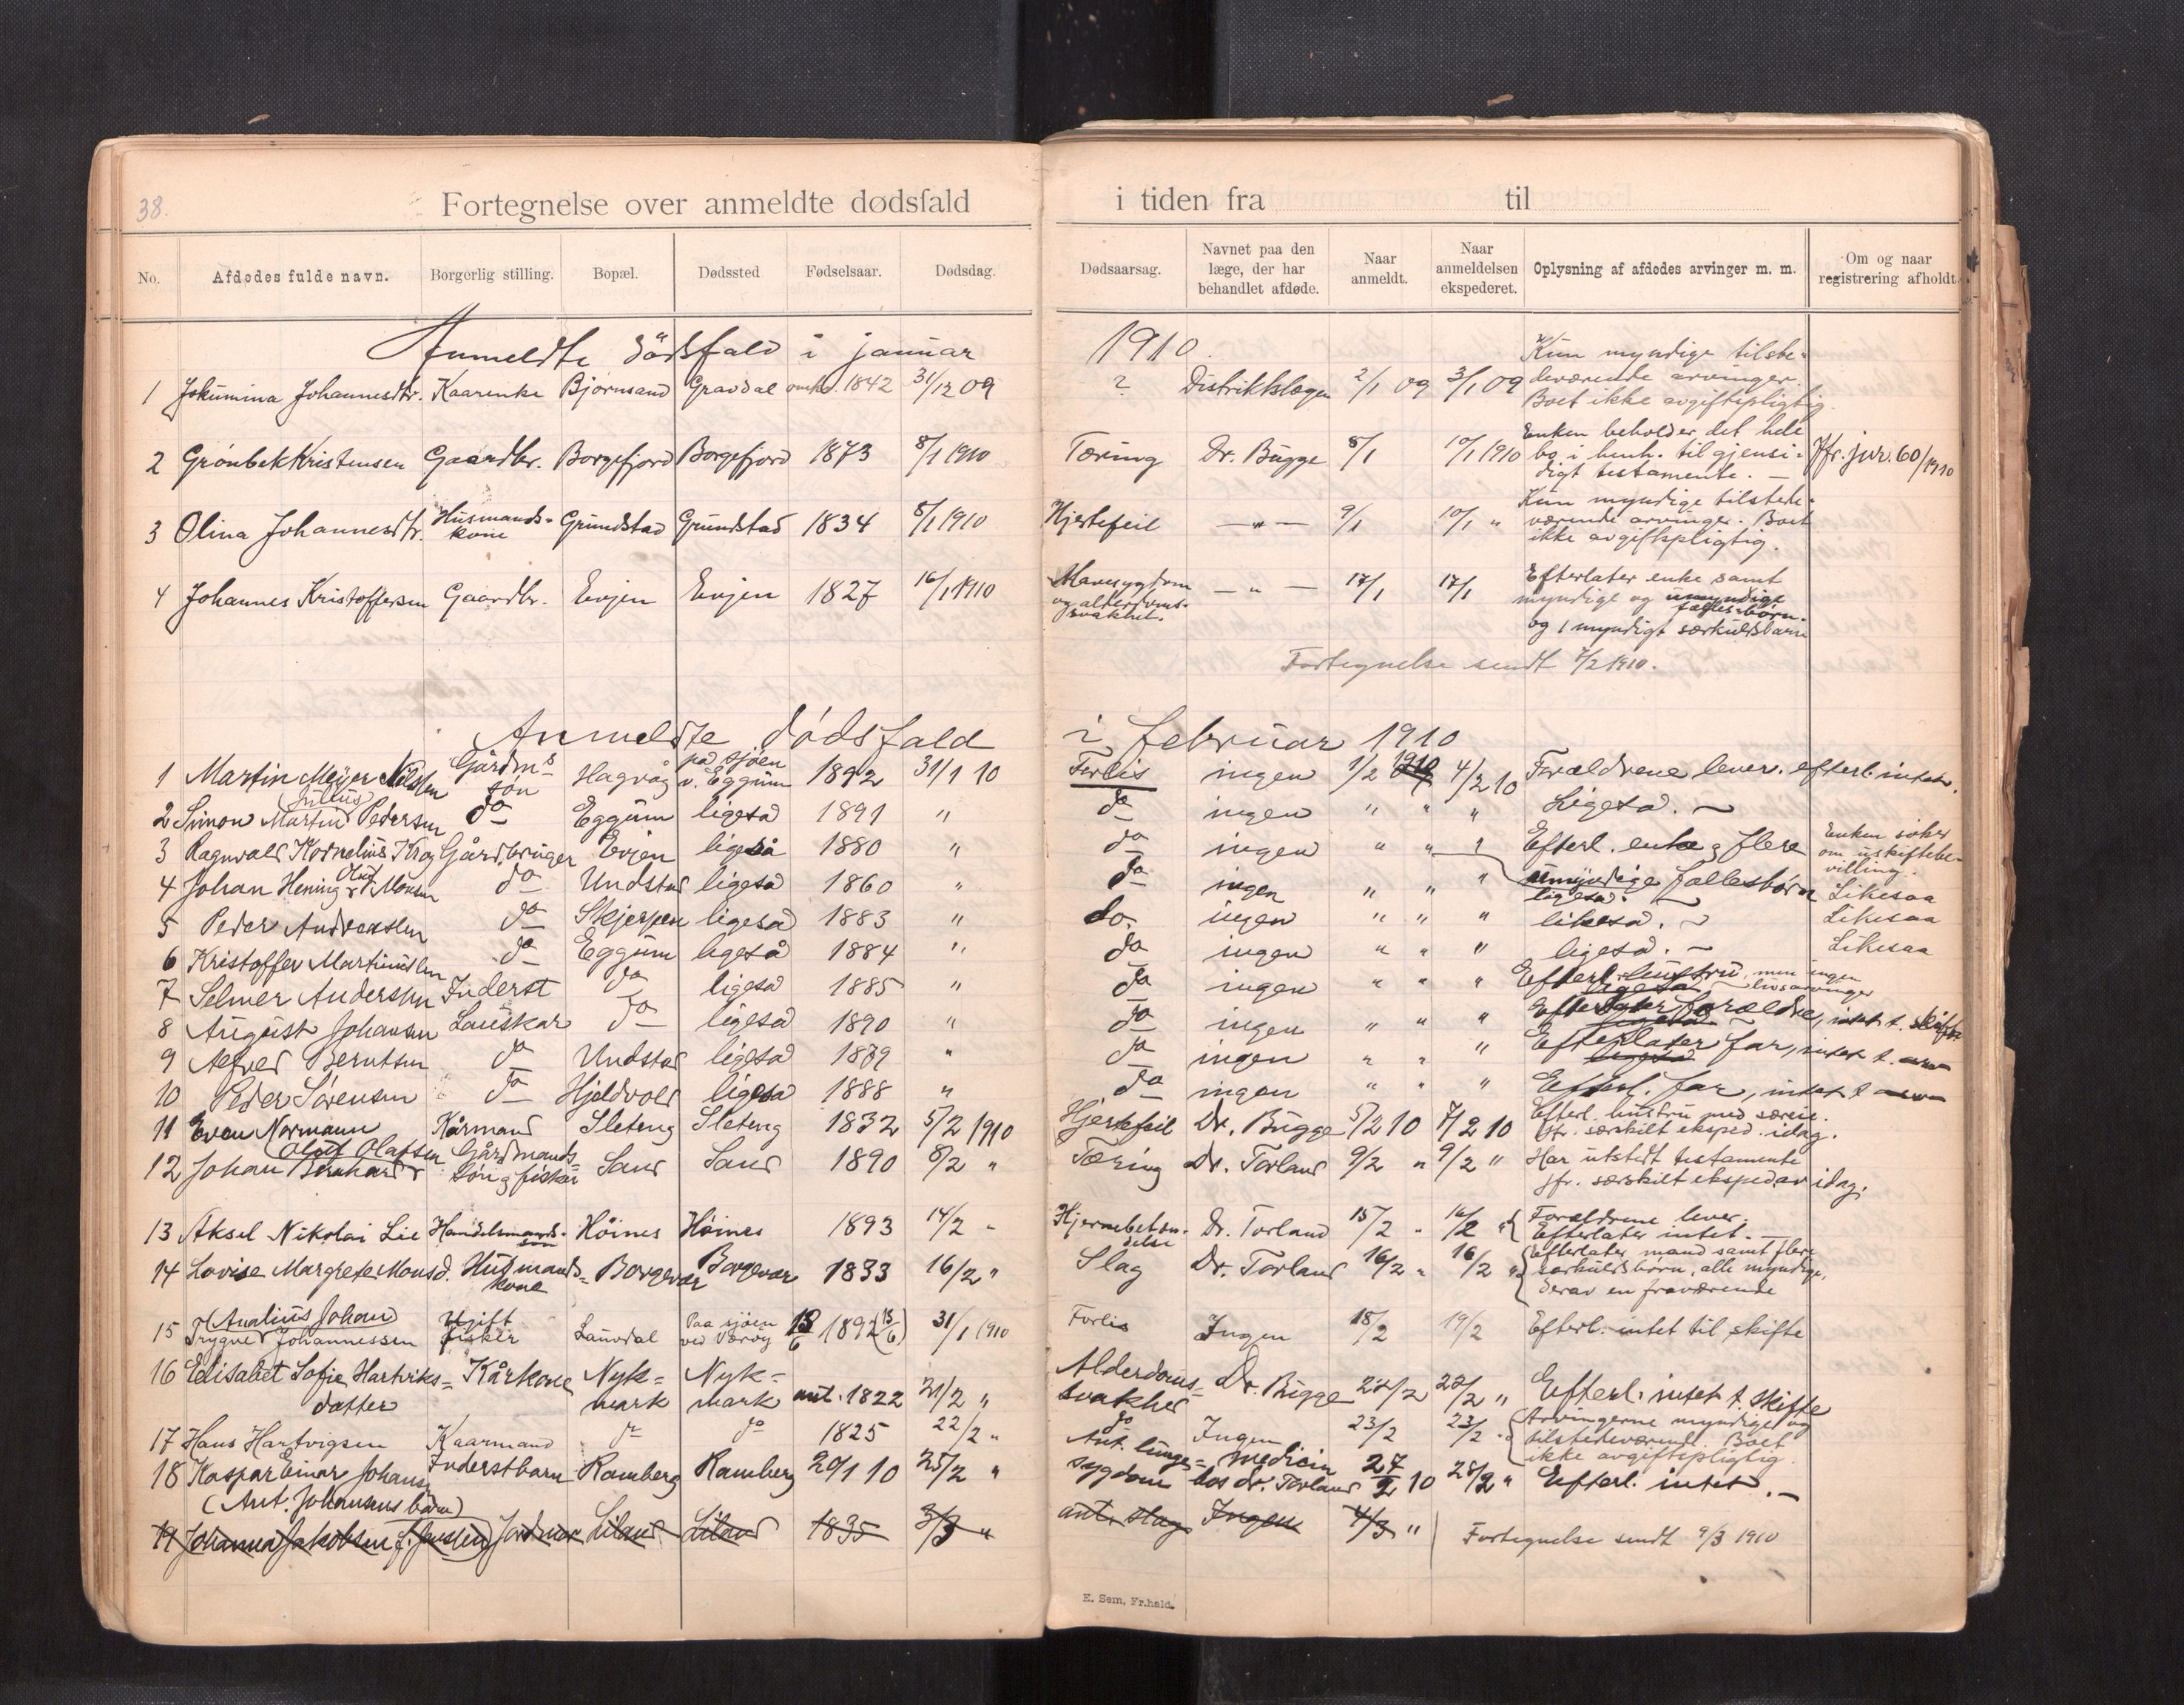 38.
Fortegnelse over anmeldte dødsfald i tiden fra til
No. Afdødes fulde navn. Borgerlig stilling. Bopæl. Dødssted Fødselsaar. Dødsdag. Dødsaarsag. Navnet paa den læge, der har behandlet afdøde. Naar anmeldt. Naar anmeldelsen ekspederet. Oplysning af afdødes arvinger m. m. Om og naar registrering afholdt.
Anmeldte dødsfald i januar 1910.
1 Jokumina Johannesdtr. Kaarenke Bjørnsand Gravdal omkr. 1842 31/12 09 ? Distriktslægen 2/1 09 3/1 09 Kun myndige tilstedeværende arvinger. Boet ikke avgiftspligtig.
2 Grönbek Kristensen Gaardbr. Borgefjord Borgefjord 1873 8/1 1910 Tæring Dr. Bugge 8/1 10/1 1910 Enken beholder det hele bo i henh. til gjensidigt testamente. — Jfr. jur. 60/1910
3 Olina Johannesdtr. Husmandskone Grundstad Grundstad 1834 8/1 1910 Hjertefeil —"— 9/1 10/1 " Kun myndige tilstedeværende arvinger. Boet ikke avgiftspligtig.
4 Johannes Kristoffersen Gaardbr. Evjen Evjen 1827 16/1 1910 Mavesygdom og alderdomssvakhet. —"— 17/1 17/1 Efterlater enke samt myndige og umyndige fællesbørn og 1 myndigt særkuldsbarn
Fortegnelse sendt 7/2 1910.
Anmeldte dödsfald i februar 1910
1 Martin Meyer Nilssen Gårdms søn Hagvåg på sjøen v. Eggum 1892 31/1 10 Forlis ingen 1/2 1910 4/2 10 Forældrene lever. efterl. intet.
2 Simon Martin Julius Pedersen do Eggum ligeså 1891 " do ingen " " " Ligeså. ~
3 Ragnvald Kornelius Krog Gårdbruger Evjen ligeså 1880 " do ingen " " " Efterl. enke & flere umyndige fællesbørn Enken søker om uskiftebevilling.
4 Johan Hening Oluf Monsen do Undstad ligeså 1860 " do ingen " " " ligeså. ~ Likesaa
5 Peder Andreassen do Skjerpen ligeså 1883 " do. ingen " " " likeså. ~ Likesaa
6 Kristoffer Martinussen do Eggum ligeså 1884 " do ingen " " " ligeså. ~ Likesaa
7 Selmer Anderssen Inderst do ligeså 1885 " do ingen " " " Efterl. hustru men ingen livsarvinger
8 August Johansen Lauskar do ligeså 1890 " do ingen " " " Efterlater forældre, intet t. skifte
9 Alfred Berntsen do Undstad ligeså 1879 " do ingen " " " Efterlater far, intet t.
10 Peder Sörensen do Hjeldvold ligeså 1888 " do ingen " " " Efterl. far, intet t
11 Even Normann Kårmand Sleteng Sleteng 1832 5/2 1910 Hjertefeil Dr. Bugge 5/2 10 7/2 10 Efterl. hustru med særeie. Jfr. særskilt eksped. idag.
12 Johan Bernhard Oluf Olafsen Gårdmandssön & fisker Sand Sand 1890 8/2 " Tæring Dr. Torland 9/2 " 9/2 " Har utstedt testamente jfr. særskilt eksped av idag.
13 Aksel Nikolai Lie Handelsmandssøn Höines Höines 1893 14/2 " Hjernebetændelse Dr. Torland 15/2 " 16/2 " Forældrene lever. Efterlater intet. —
14 Lovise Margrete Monsd. Husmandskone Borgevær Borgevær 1833 16/2 " Slag Dr. Torland 16/2 " 16/2 " Efterlater mand samt flere særkuldsbørn, alle myndige, derav en fraværende
15 Trygve (Analius Johan) Johannessen Ugift fisker Lauvdal Paa sjøen ved Værøy 13/6 1892 (13/6) 31/1 1910 Forlis Ingen 18/2 19/2 Efterl. intet til skifte
16 Elisabet Sofie Hartviksdatter Kårkone Nykmark Nykmark ant. 1822 21/2 " Alderdomssvakhed Dr. Bugge 22/2 22/2 " Efterl. intet t. skifte
17 Hans Hartvigsen Kaarmand do do 1825 22/2 " do Ingen 23/2 23/2 " Arvingerne myndige og tilstedeværende. Boet ikke avgiftspligtig.
18 Kaspar Einar Johansen (Ant. Johansens barn) Inderstbarn Ramberg Ramberg 20/1 10 25/2 " Ant. lungesygdom medicin hos dr. Torland 27/2 10 28/2 " Efterl. intet. —
19 Johanna Jakobsen f. Janssen Jordmor Liland Liland 1835 3/3 " ant. slag Ingen 4/3 "
Fortegnelse sendt 9/3 1910
E. Sem, Fr.hald.